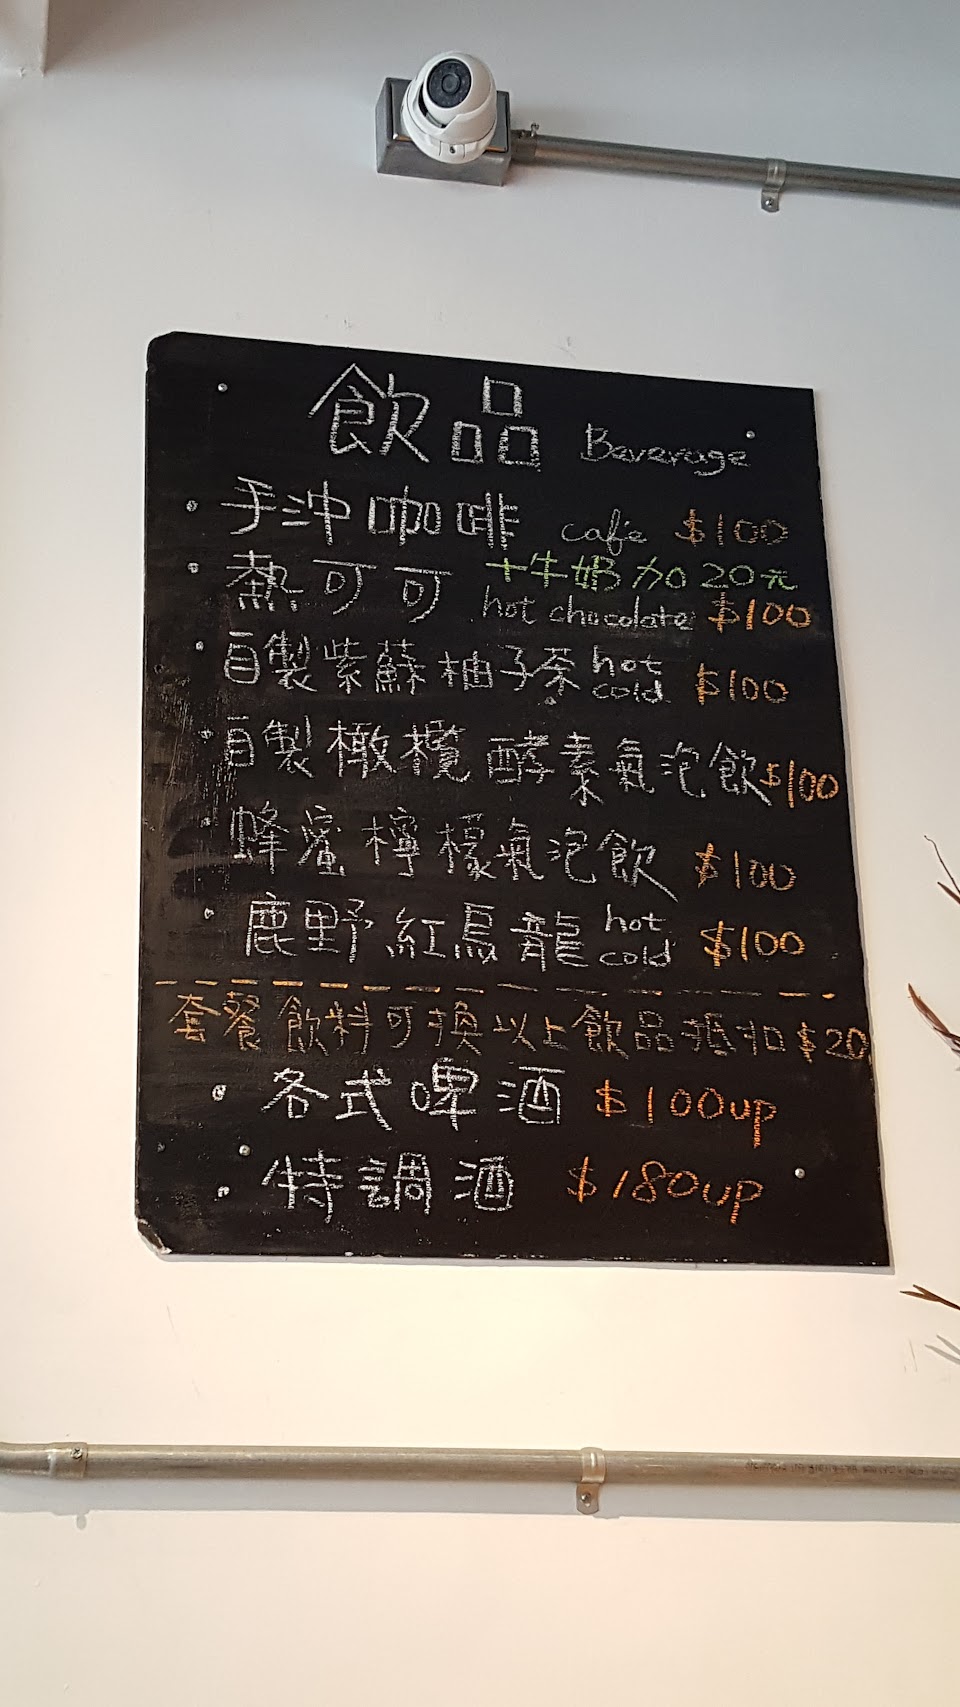 飲品 Beverage
手沖咖啡 cafe $100
+牛奶加20元
熱可可 hot chocolate $100
自製紫蘇柚子茶 hot cold $100
自製橄欖酵素氣泡飲 $100
蜂蜜檸檬氣泡飲 $100
鹿野紅烏龍 hot cold $100
套餐飲料可換以上飲品抵扣$20
各式啤酒 $100up
特調酒 $180up